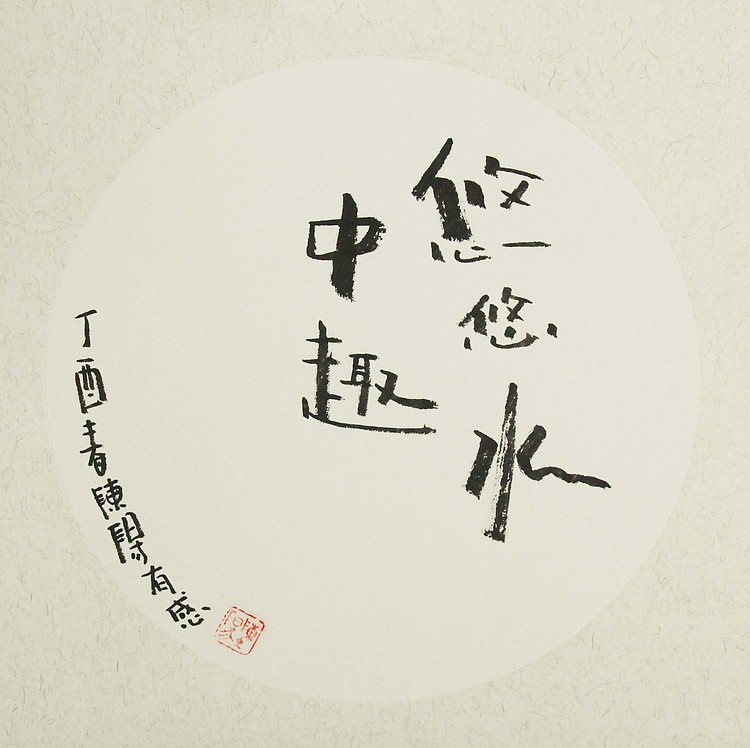 悠悠水
中趣
丁酉春陳閱有感